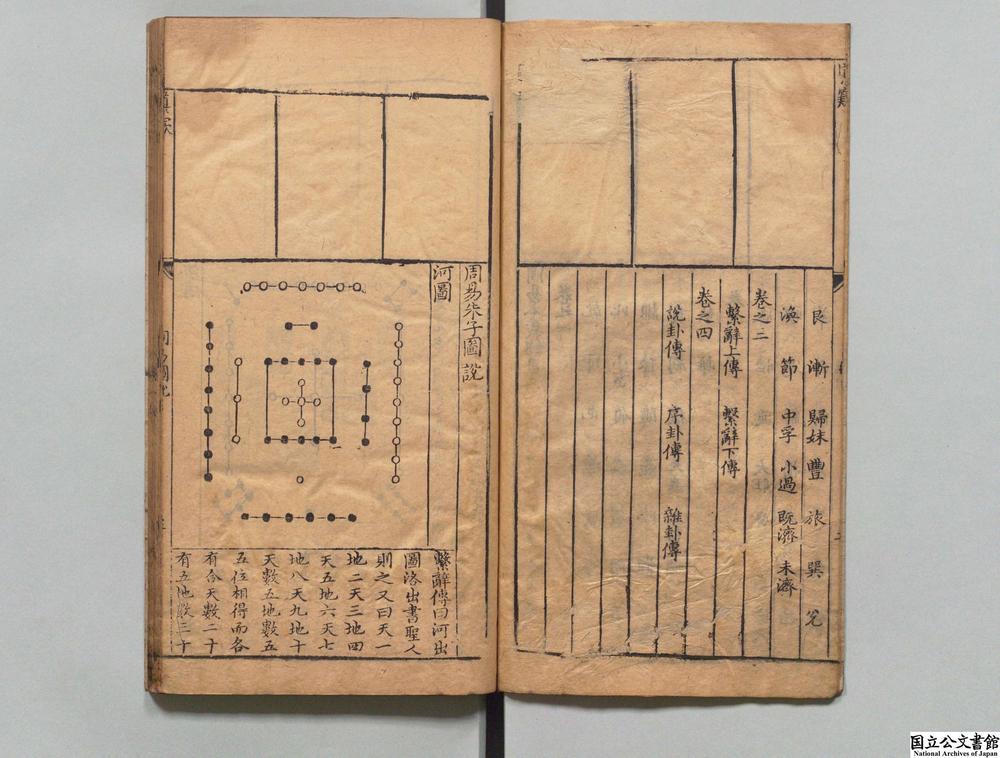 艮 漸 歸妹 豐 旅 巽 兌
渙 節 中孚 小過 既濟 未濟
卷之三
繫辭上傳 繫辭下傳
卷之四
說卦傳 序卦傳 雜卦傳
周易朱子圖說
河圖
繫辭傳曰河出
圖洛出書聖人
則之又曰天一
地二天三地四
天五地六天七
地八天九地十
天數五地數五
五位相得而各
有合天數二十
有五地數三十
国立公文書館
National Archives of Japan